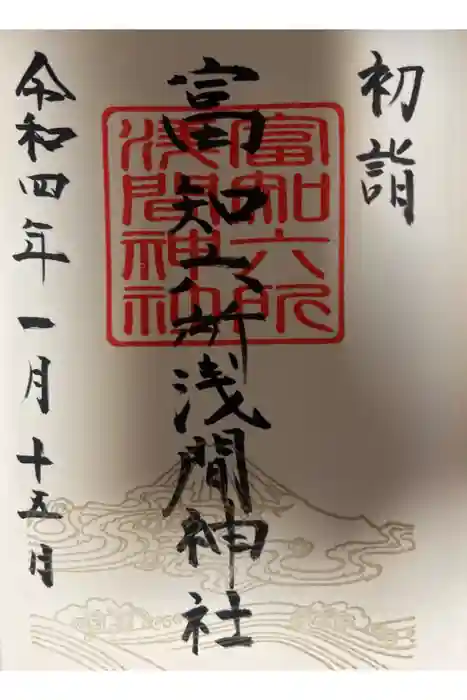 初詣
富知六所浅間神社
富知六所
淺間神社
令和四年一月十五日